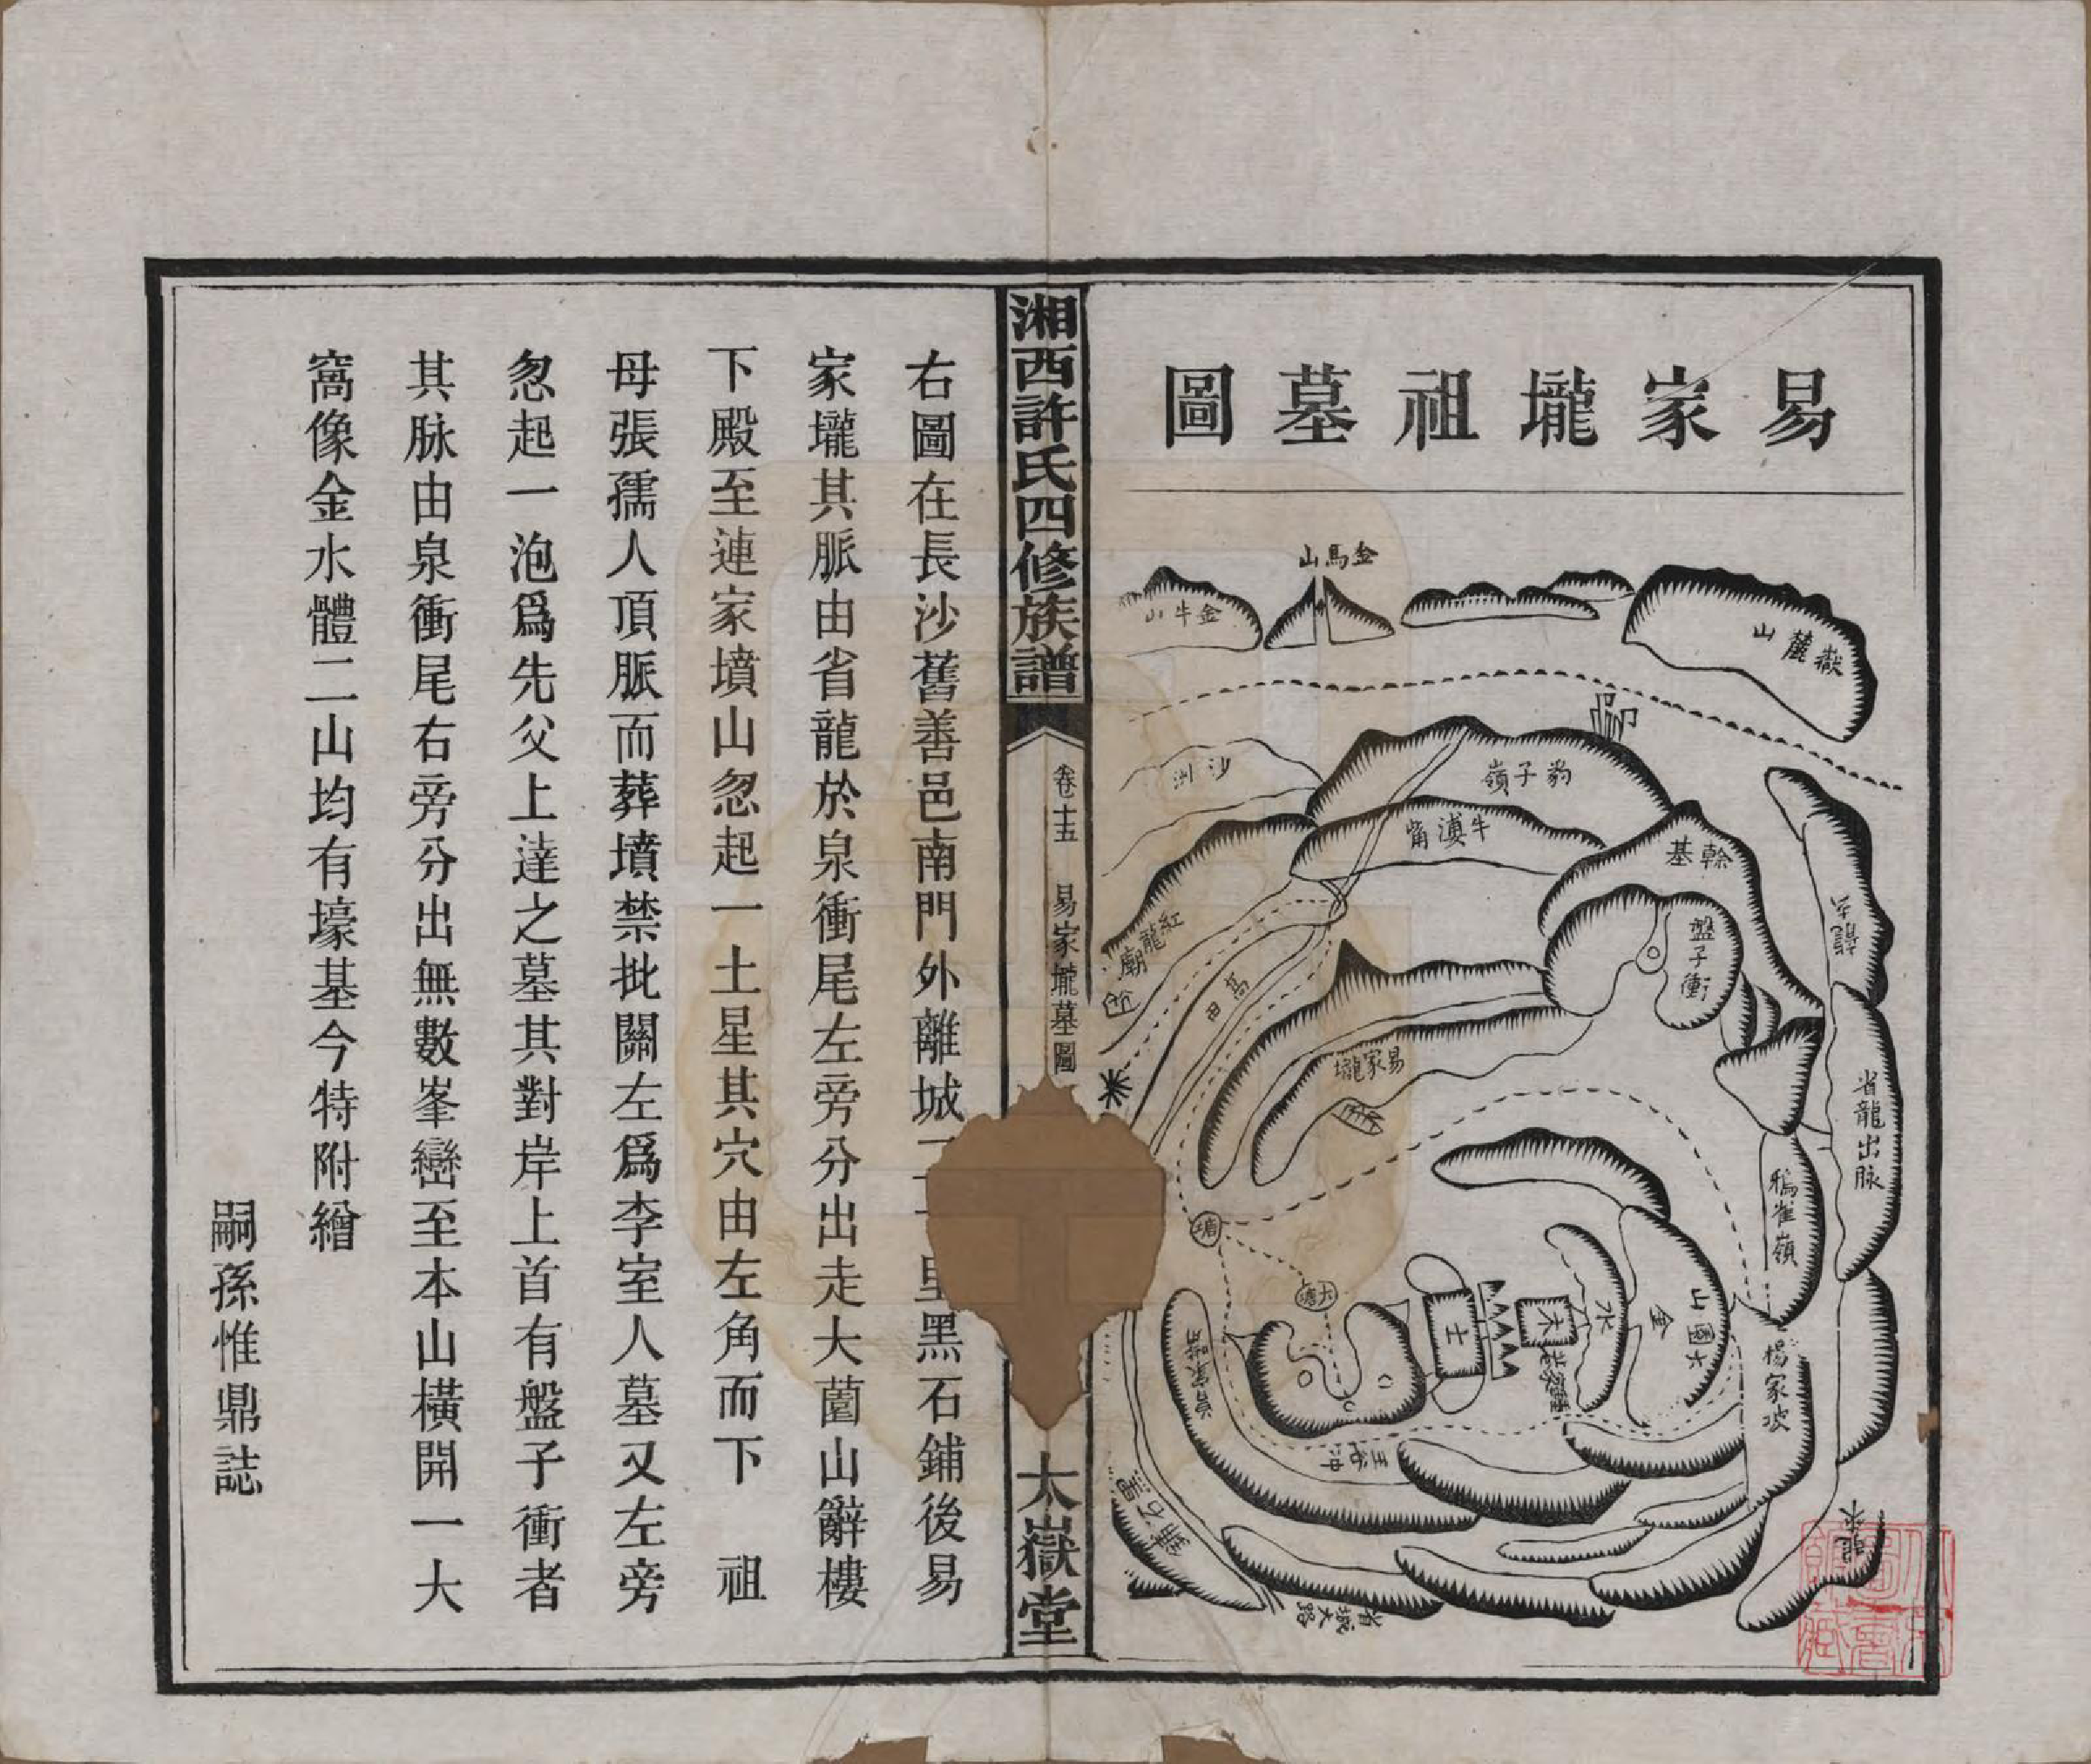 易家壠祖墓圖
嶽麓山
金馬山
金牛山
沙洲
豹子嶺
牛漊甯
幹基
盤子衝
紅龍廟
高田
易家壠
省龍出脉
鴉雀嶺
楊家坡
塘
大塘
土
木
水
金
大圍山
王谷冲
省城大路
湘西許氏四修族譜
卷十五
易家壠墓圖
太嶽堂
右圖在長沙舊善邑南門外離城二十里黑石鋪後易
家壠其脈由省龍於泉衝尾左旁分出走大薗山辭樓
下殿至連家墳山忽起一土星其穴由左角而下 祖
母張孺人頂脈而葬墳禁批關左爲李室人墓又左旁
忽起一泡爲先父上達之墓其對岸上首有盤子衝者
其脉由泉衝尾右旁分出無數峯巒至本山橫開一大
窩像金水體二山均有壕基今特附繪
嗣孫惟鼎誌